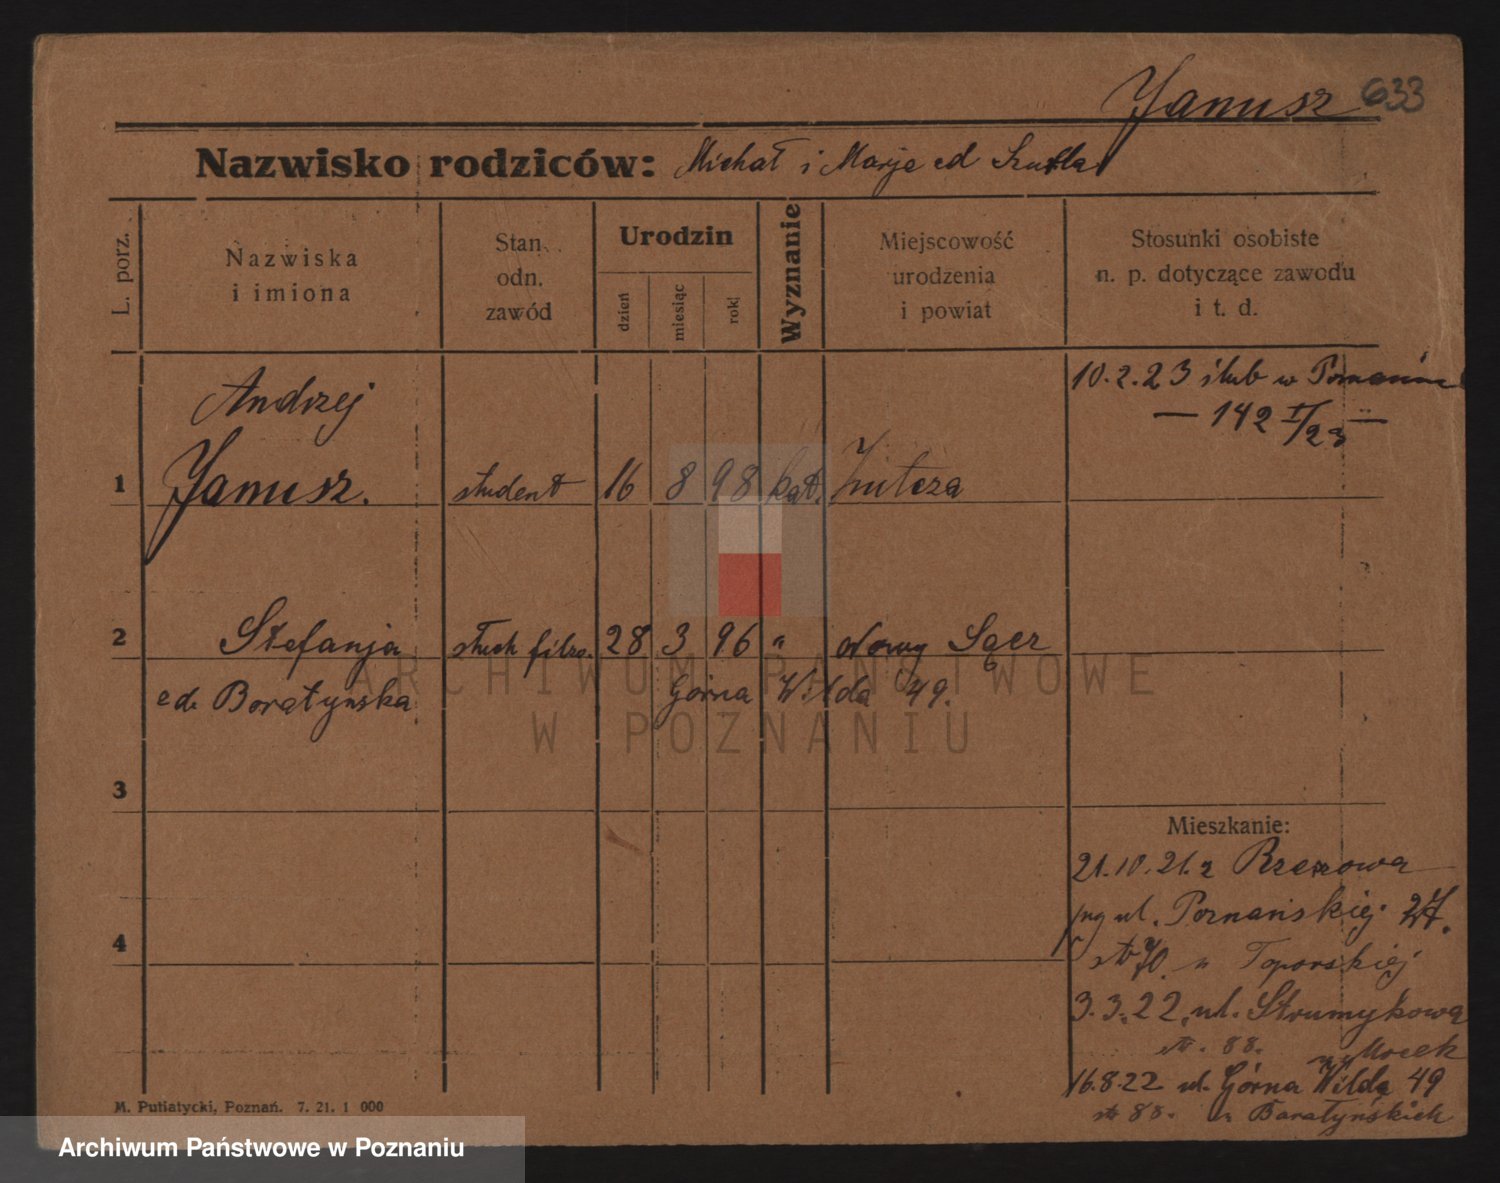 Janusz 633
Nazwisko rodziców: Michał i Marja ed Szufla
L. porz.
Nazwiska i imiona
Stan odn. zawód
Urodzin
dzień miesiąc rok
Wyznanie
Miejscowość urodzenia i powiat
Stosunki osobiste n. p. dotyczące zawodu i t. d.
10.2.23 ślub w Poznaniu
— 142 I/23 —
Andrzej
1 Janusz. student 16 8 98 kat.
2 Stefanja słuch filzo. 28 3 96 " Nowy Sącz
ed. Boratyńska Górna Wilda 49.
3
Mieszkanie:
21.10.21. z Rzeszowa
ul. Poznańskiej 27.
4
u Toporskiej
3.3.22. ul. Strumykowa
str. 88. Mocek
16.8.22 ul. Górna Wilda 49
str 88. u Baratyńskich
M. Putiatycki, Poznań. 7. 21. 1 000
ARCHIWUM PAŃSTWOWE
W POZNANIU
Archiwum Państwowe w Poznaniu